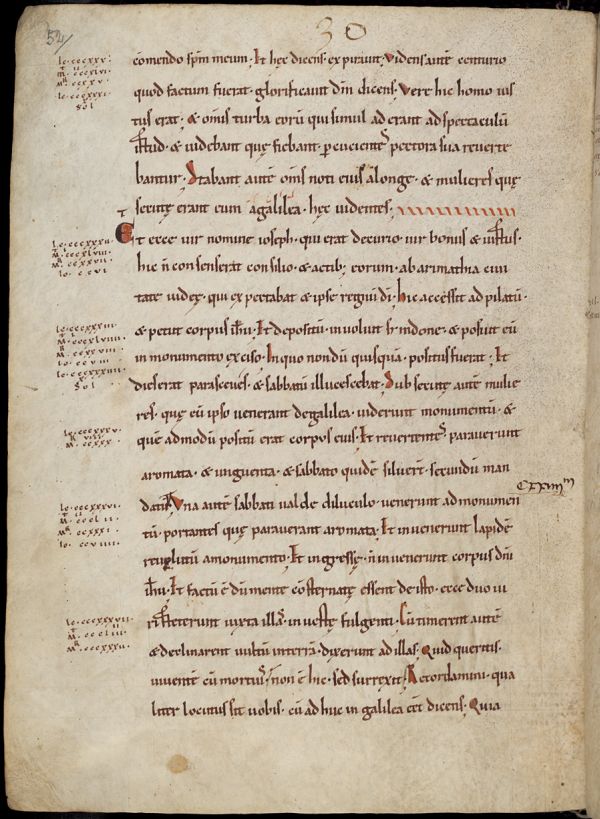 52
30
cōmendo spm̄ meum. Et hęc dicens expirauit. Videns autē centurio
quod factum fuerat. glorificauit dm̄ dicens. Vere hic homo ius
tus erat. & omīs turba eorū qui simul aderant ad spectaculū
istud. & uidebant quę fiebant. percucientes pectora sua reuerte
bantur. Stabant autē om̄s noti eius a longe. & mulieres quę
secutę erant eum a galilea. hęc uidentes.
Et ecce uir nomine ioseph. qui erat decurio. uir bonus & iustus.
hic n̄ consenserat consilio. & actib; eorum. ab arimathia ciui
tate iudeę. qui expectabat & ipse regnū dī. hic accessit ad pilatū.
& petiit corpus ihū. Et depositū inuoluit sindone. & posuit eū
in monumento exciso. In quo nondū quisquā positus fuerat. Et
dies erat parasceues. & sabbatū illucescebat. Subsecutę autē mulie
res. quę cū ipso uenerant de galilea. uiderunt monumentū. &
quē admodū positū erat corpus eius. Et reuertentes parauerunt
aromata. & unguenta. & sabbato quidē siluerт̄. secundū man
datū. Vna autē sabbati ualde diluculo. uenerunt ad monumen
tū. portantes quę parauerant aromata. Et inuenerunt lapidē
reuolutū a monumento. Et ingressę. n̄ inuenerunt corpus dn̄i
ihū. Et factū ē dū mente cōsternatę essent de isto. ecce duo ui
ri steterunt iuxta illas. in ueste fulgenti. Cū timerent autē
& declinarent uultū in terrā. dixerunt ad illas. Quid queritis
uiuentē cū mortuis. non ē hic. sed surrexit. Recordamini. qua
liter locutus sit uobis. cū ad huc in galilea eēt dicens. Quia